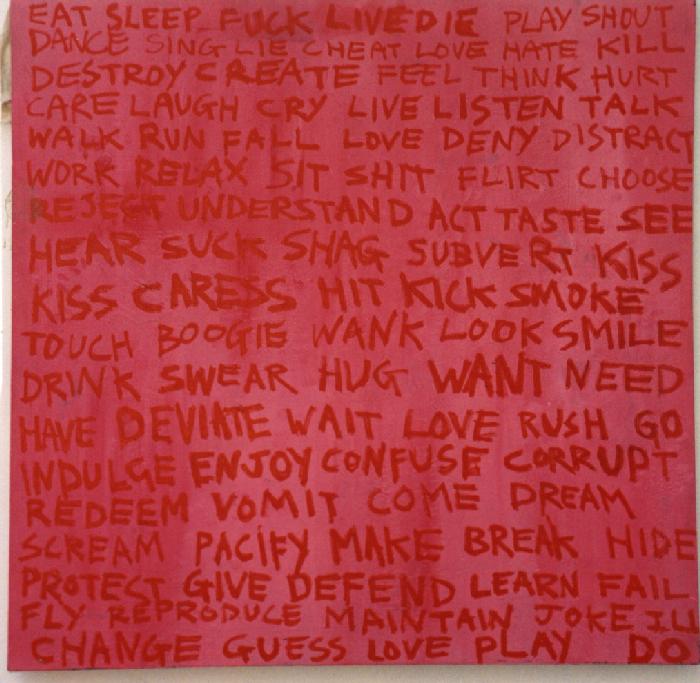 EAT SLEEP FUCK LIVE DIE PLAY SHOUT
DANCE SING LIE CHEAT LOVE HATE KILL
DESTROY CREATE FEEL THINK HURT
CARE LAUGH CRY LIVE LISTEN TALK
WALK RUN FALL LOVE DENY DISTRACT
WORK RELAX SIT SHIT FLIRT CHOOSE
REJECT UNDERSTAND ACT TASTE SEE
HEAR SUCK SHAG SUBVERT KISS
KISS HIT KICK SMOKE
TOUCH BOOGIE WANK LOOK SMILE
DRINK SWEAR HUG WANT NEED
HAVE DEVIATE WAIT LOVE RUSH GO
INDULGE ENJOY CONFUSE CORRUPT
REDEEM VOMIT COME DREAM
SCREAM PACIFY MAKE BREAK HIDE
PROTEST GIVE DEFEND LEARN FAIL
FLY REPRODUCE MAINTAIN JOKE
CHANGE GUESS LOVE PLAY DO